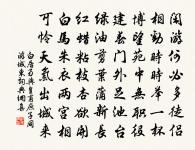 閑遊何必多徒侶
相勸時時舉一杯
博望苑中無職役
建春門外足池臺
綠油剪葉蒲新長
紅蠟粘枝杏欲開
白馬朱衣兩宮相
可憐天氣出城來
白居易與皇甫庶子同
遊城東詞典網